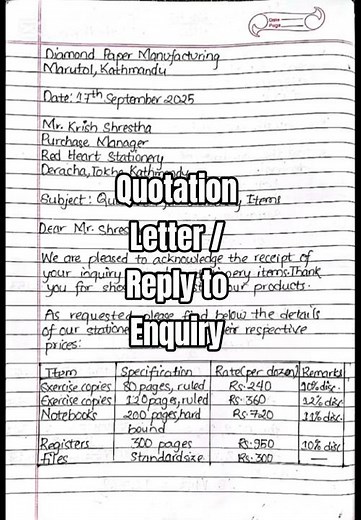 Date
Page
Diamond Paper Manufacturing
Marutol, Kathmandu
Date: 17th September 2025
Mr. Krish Shrestha
Purchase Manager
Red Heart Stationery
Deracha, Tokha, Kathmandu
Quotation
Subject: Items
Dear Mr.
Letter /
We are pleased to acknowledge the receipt of
your inquiry items. Thank
Reply to
you for our products.
As requested, please find below the details
of our their respective
Enquiry
prices:
Item Specification Rate(per dozen) Remarks
Exercise copies 80 pages, ruled Rs. 240 10% disc.
Exercise copies 120 pages, ruled Rs. 360 12% disc.
Notebooks 200 pages, hard Rs. 720 11% disc.
bound
Registers 300 pages Rs. 950 10% disc.
Files Standard size Rs. 300 —